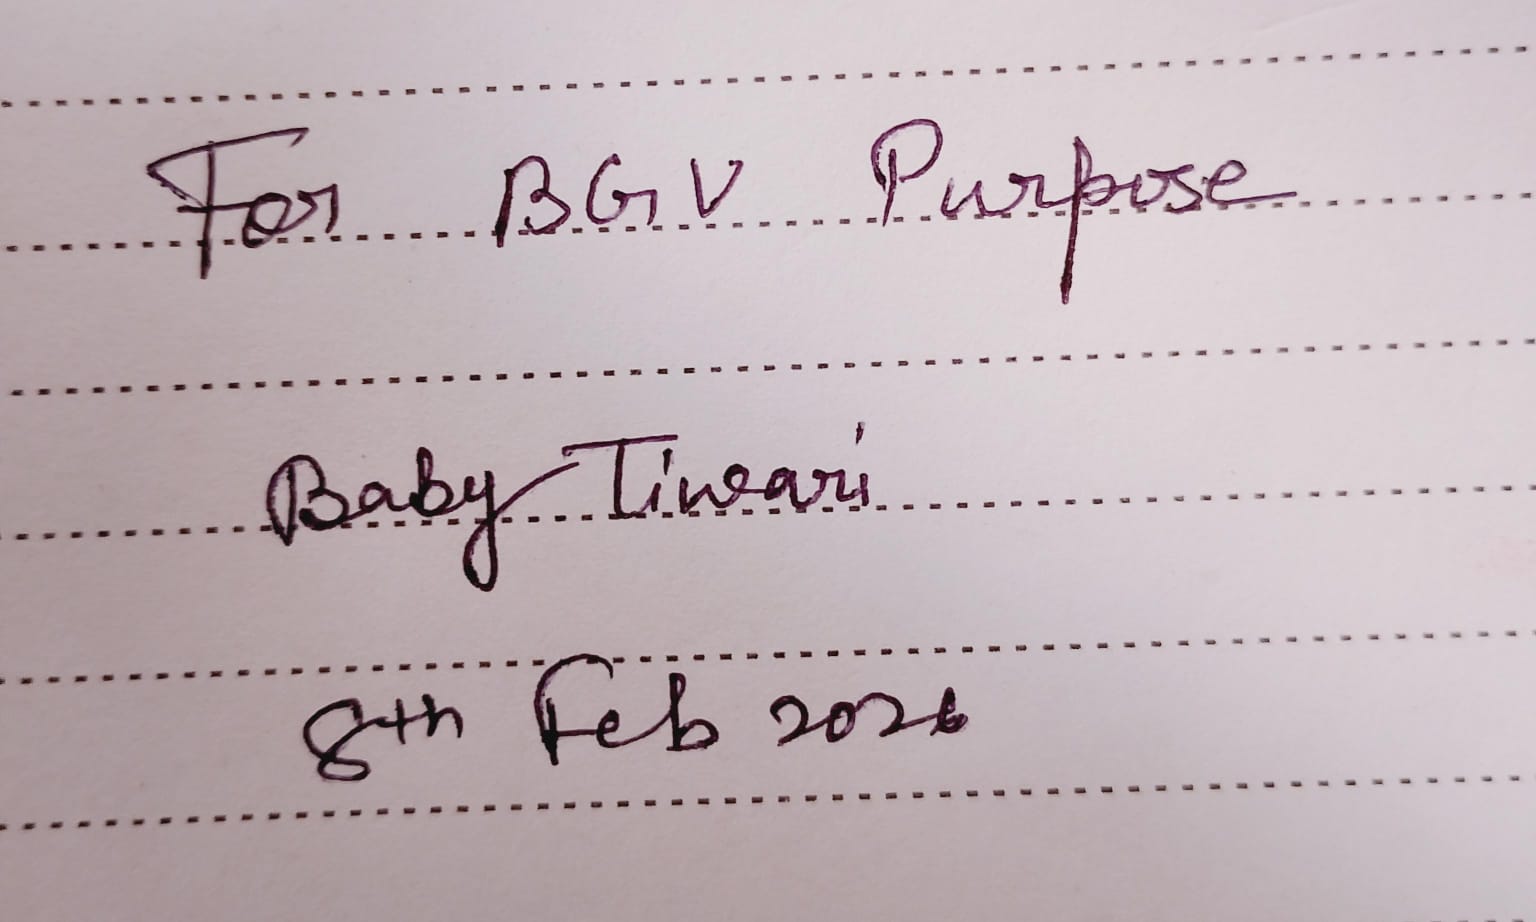 For BGV Purpose
Baby Tiwari
8th Feb 2026